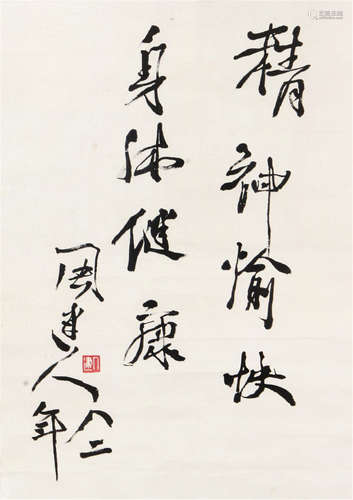 精神愉快
身体健康
周建人
八二年